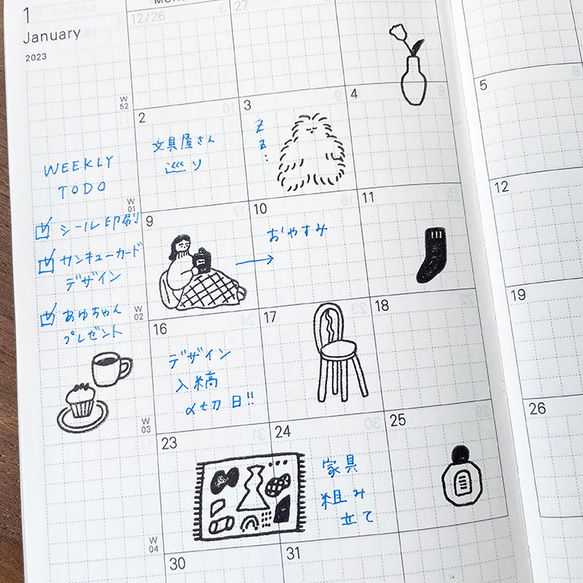 1
January
2023
MON
12/26
27
28
4
5
W
52
2
3
文具屋さん
巡り
Z
Z
:
WEEKLY
TODO
シール印刷
サンキューカード
デザイン
あゆちゃん
プレゼント
W
01
9
10
11
12
おやすみ
W
02
16
17
18
19
デザイン
入稿
〆切日!!
W
03
23
24
25
26
家具
組み
立て
W
04
30
31